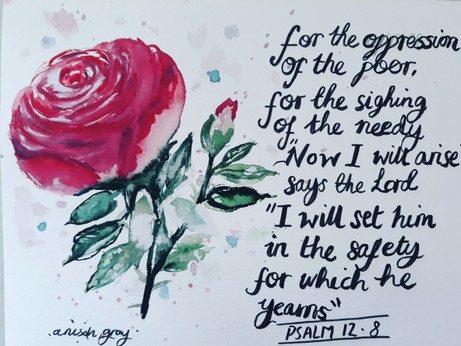 for the oppression
of the poor,
for the sighing
of the needy
"Now I will arise"
says the Lord
"I will set him
in the safety
for which he
yearns"
PSALM 12.8
anisah gray.